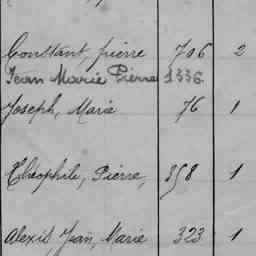 Constant, pierre 706 2
Jean Marie Pierre 1336
Joseph, Marie 76 1
Théophile, Pierre, 858 1
Alexis Jean, Marie 323 1